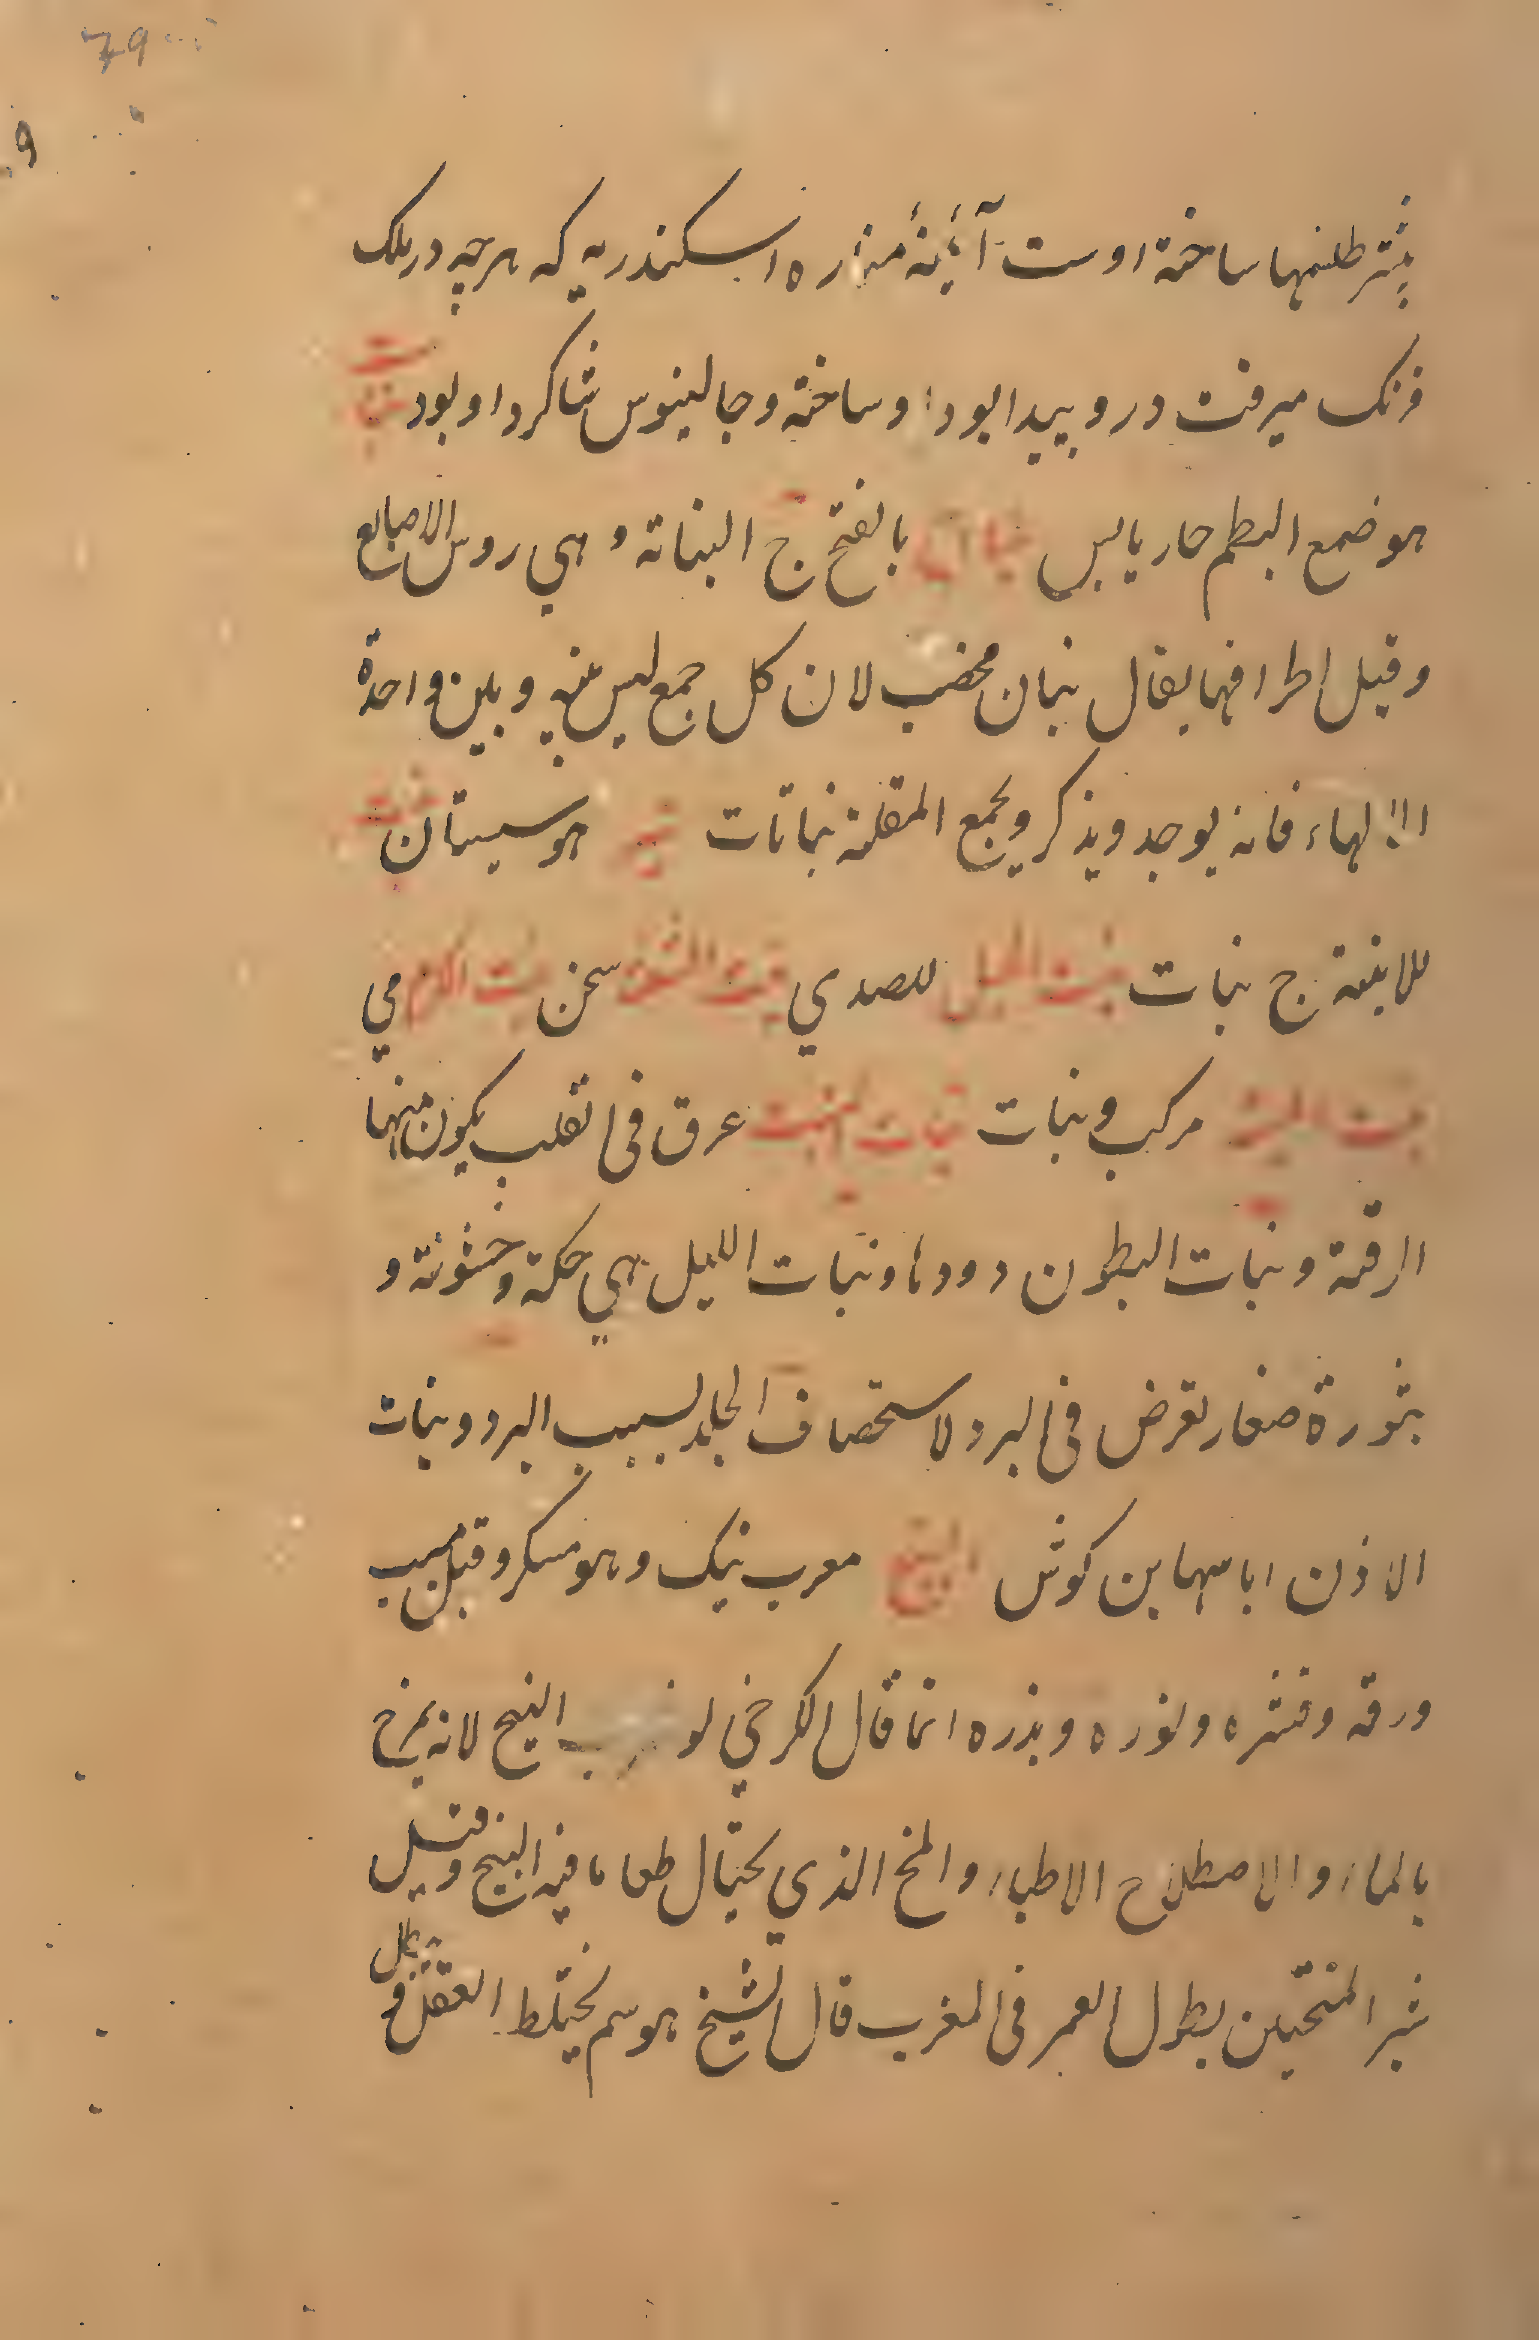 79
9
بیشتر طلسمها ساخته اوست آئینهٔ مناره اسکندریه که هرچه در ملک
فرنک میرفت درو پیدا بود او ساخته و جالینوس شاکرد او بود
هو صمغ البطم حار یابس بالفتح ج البنانة و هی روس الاصابع
و قیل اطرافها یقال بنان مخضب لان کل جمع لیس بینه و بین واحدة
الا الهاء فانه یوحد و یذکر و یجمع المقلة بنانات هو سیستان
للابنة ج بنات بنت الجبل للصدی سخن بنت الکرم می
مرکب و بنات عرق فی القلب یکون منها
الرقة و بنات البطون دودها و بنات اللیل هی حکة و خشونة و
بثورة صغار تعرض فی البرد لاستحصاف الجلد بسبب البرد و بنات
الاذن اباسها بن کوش البنج معرب بنک و هو مسکر و قیل
ورقه و قشره و نوره و بذره انما قال الکرخی البنج لانه یمزج
بالماء و الاصطلاح الاطباء و المخ الذی یحتال طعاما فیه البنج و قیل
المنحتین بطول العمر فی المغرب قال الشیخ هو سم یختلط العقل و